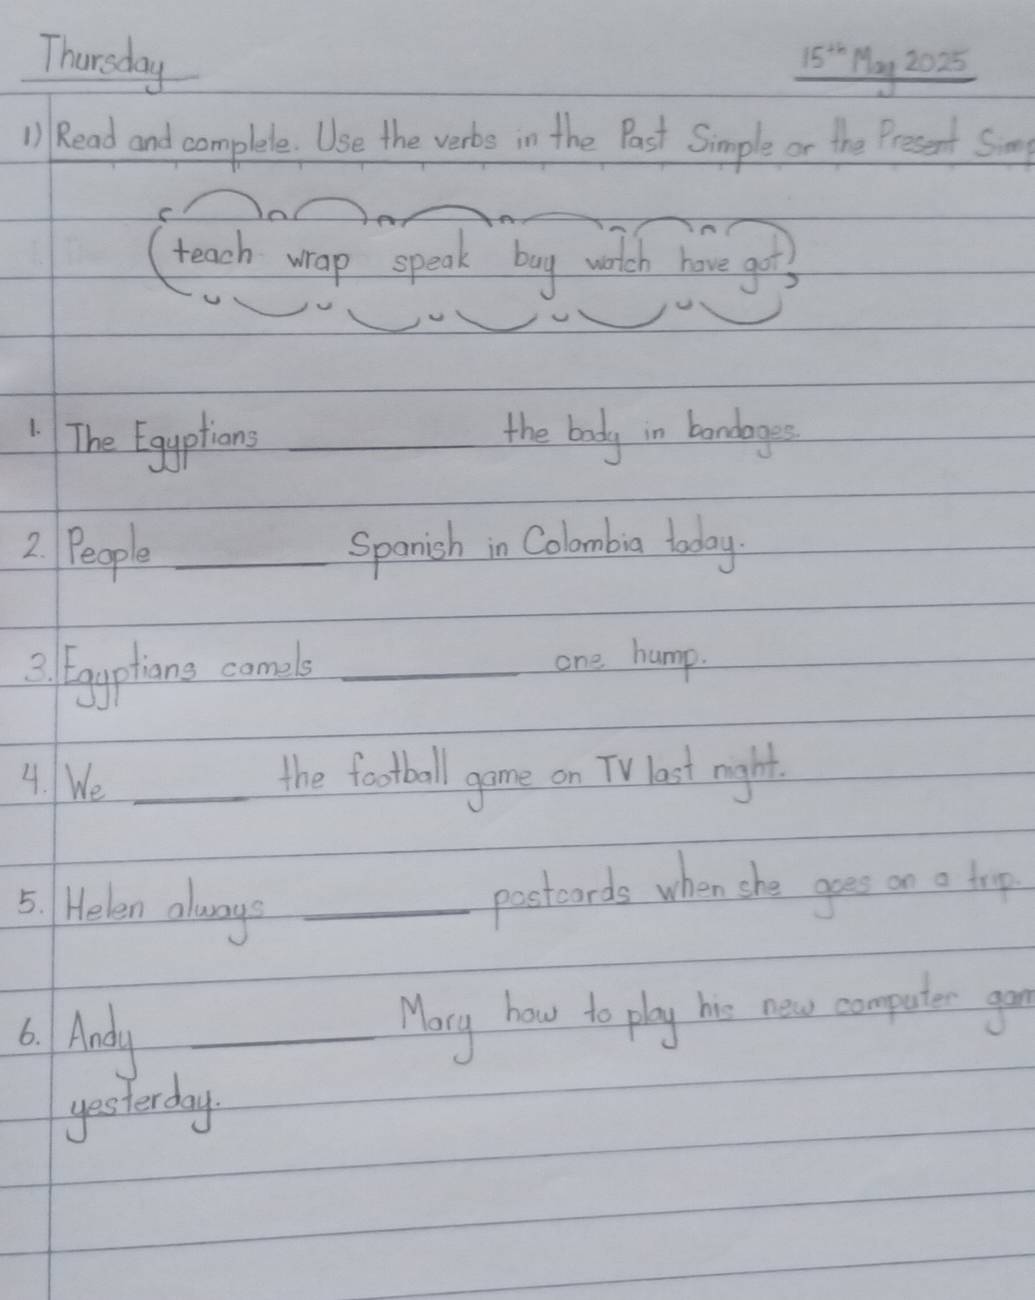 Thursday 15th May 2025
1) Read and complete. Use the verbs in the Past Simple or the Present Simp
teach wrap speak buy watch have got
1. The Egyptians ________ the body in bandages.
2. People ________ Spanish in Colombia today.
3. Egyptians camels ________ one hump.
4. We ________ the football game on TV last night.
5. Helen always ________ postcards when she goes on a trip.
6. Andy ________ Mary how to play his new computer gam
yesterday.